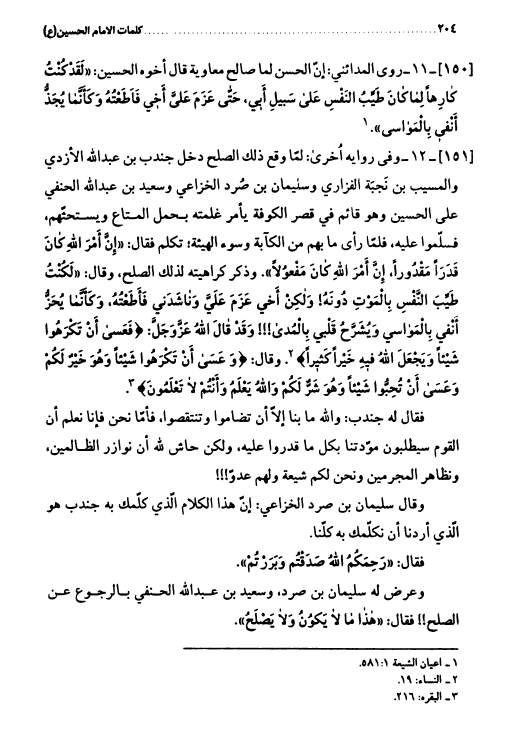 ٢٠٤ ........................................ كلمات الامام الحسين(ع)
[١٥٠]ـ١١ـ روى المدائني: إنّ الحسن لما صالح معاوية قال أخوه الحسين: «لَقَدْ كُنْتُ
كٰارِهاً لِمٰا كٰانَ طَيِّبَ النَّفْسِ عَلىٰ سَبيلِ أَبي، حَتّٰى عَزَمَ عَلَيَّ أَخي فَأَطَعْتُهُ وَكَأَنَّمٰا يُجَذُّ
أَنْفي بِالْمَوٰاسى».١
[١٥١]ـ١٢ـ وفى روايه أُخرىٰ: لمّا وقع ذلك الصلح دخل جندب بن عبدالله الأزدي
والمسيب بن نَجبَة الفزاري وسليمان بن صُرد الخزاعي وسعيد بن عبدالله الحنفي
على الحسين وهو قائم في قصر الكوفة يأمر غلمته بـحمل المـتاع ويسـتحثّهم،
فسلّموا عليه، فلمّا رأى ما بهم من الكآبة وسوء الهيئة؛ تكلم فقال: «إِنَّ أَمْرَ اللهِ كٰانَ
قَدَراً مَقْدُوراً، إِنَّ أَمْرَ اللهِ كٰانَ مَفْعُولاً». وذكر كراهيته لذلك الصلح، وقال: «لَكُنْتُ
طَيِّبَ النَّفْسِ بِالْمَوْتِ دُونَهُ! وَلٰكِنْ أَخي عَزَمَ عَلَيَّ وَنٰاشَدَني فَأَطَعْتُهُ، وَكَأَنَّمٰا يُحَزُّ
أَنْفي بِالْمَوٰاسي وَيُشَرَّحُ قَلْبي بِالْمُدىٰ!!! وَقَدْ قٰالَ اللهُ عَزَّوَجَلَّ: ﴿فَعَسىٰ أَنْ تَكْرَهُوا
شَيْئاً وَيَجْعَلَ اللهُ فيهِ خَيْراً كَثيراً﴾٢. وقال: ﴿وَ عَسىٰ أَنْ تَكْرَهُوا شَيْئاً وَهُوَ خَيْرٌ لَكُمْ
وَعَسىٰ أَنْ تُحِبُّوا شَيْئاً وَهُوَ شَرٌّ لَكُمْ وَاللهُ يَعْلَمُ وَأَنْتُمْ لاٰ تَعْلَمُونَ﴾٣.
فقال له جندب: والله ما بنا إلاّ أن تضاموا وتنتقصوا، فأمّا نحن فإنا نعلم أن
القوم سيطلبون مودّتنا بكل ما قدروا عليه، ولكن حاش لله أن نوازر الظـالمين،
ونظاهر المجرمين ونحن لكم شيعة ولهم عدوّ!!!
وقال سليمان بن صرد الخزاعي: إنّ هذا الكلام الّذي كلّمك به جندب هو
الّذي أردنا أن نكلّمك به كلّنا.
فقال: «رَحِمَكُمُ اللهُ صَدَقْتُم وَبَرَرْتُمْ».
وعرض له سليمان بن صرد، وسعيد بن عـبدالله الحـنفي بـالرجوع عـن
الصلح!! فقال: «هٰذٰا مٰا لاٰ يَكُونُ وَلاٰ يَصْلَحُ».
١ ـ اعيان الشيعة ١:٥٨١.
٢ ـ النساء: ١٩.
٣ ـ البقره: ٢١٦.